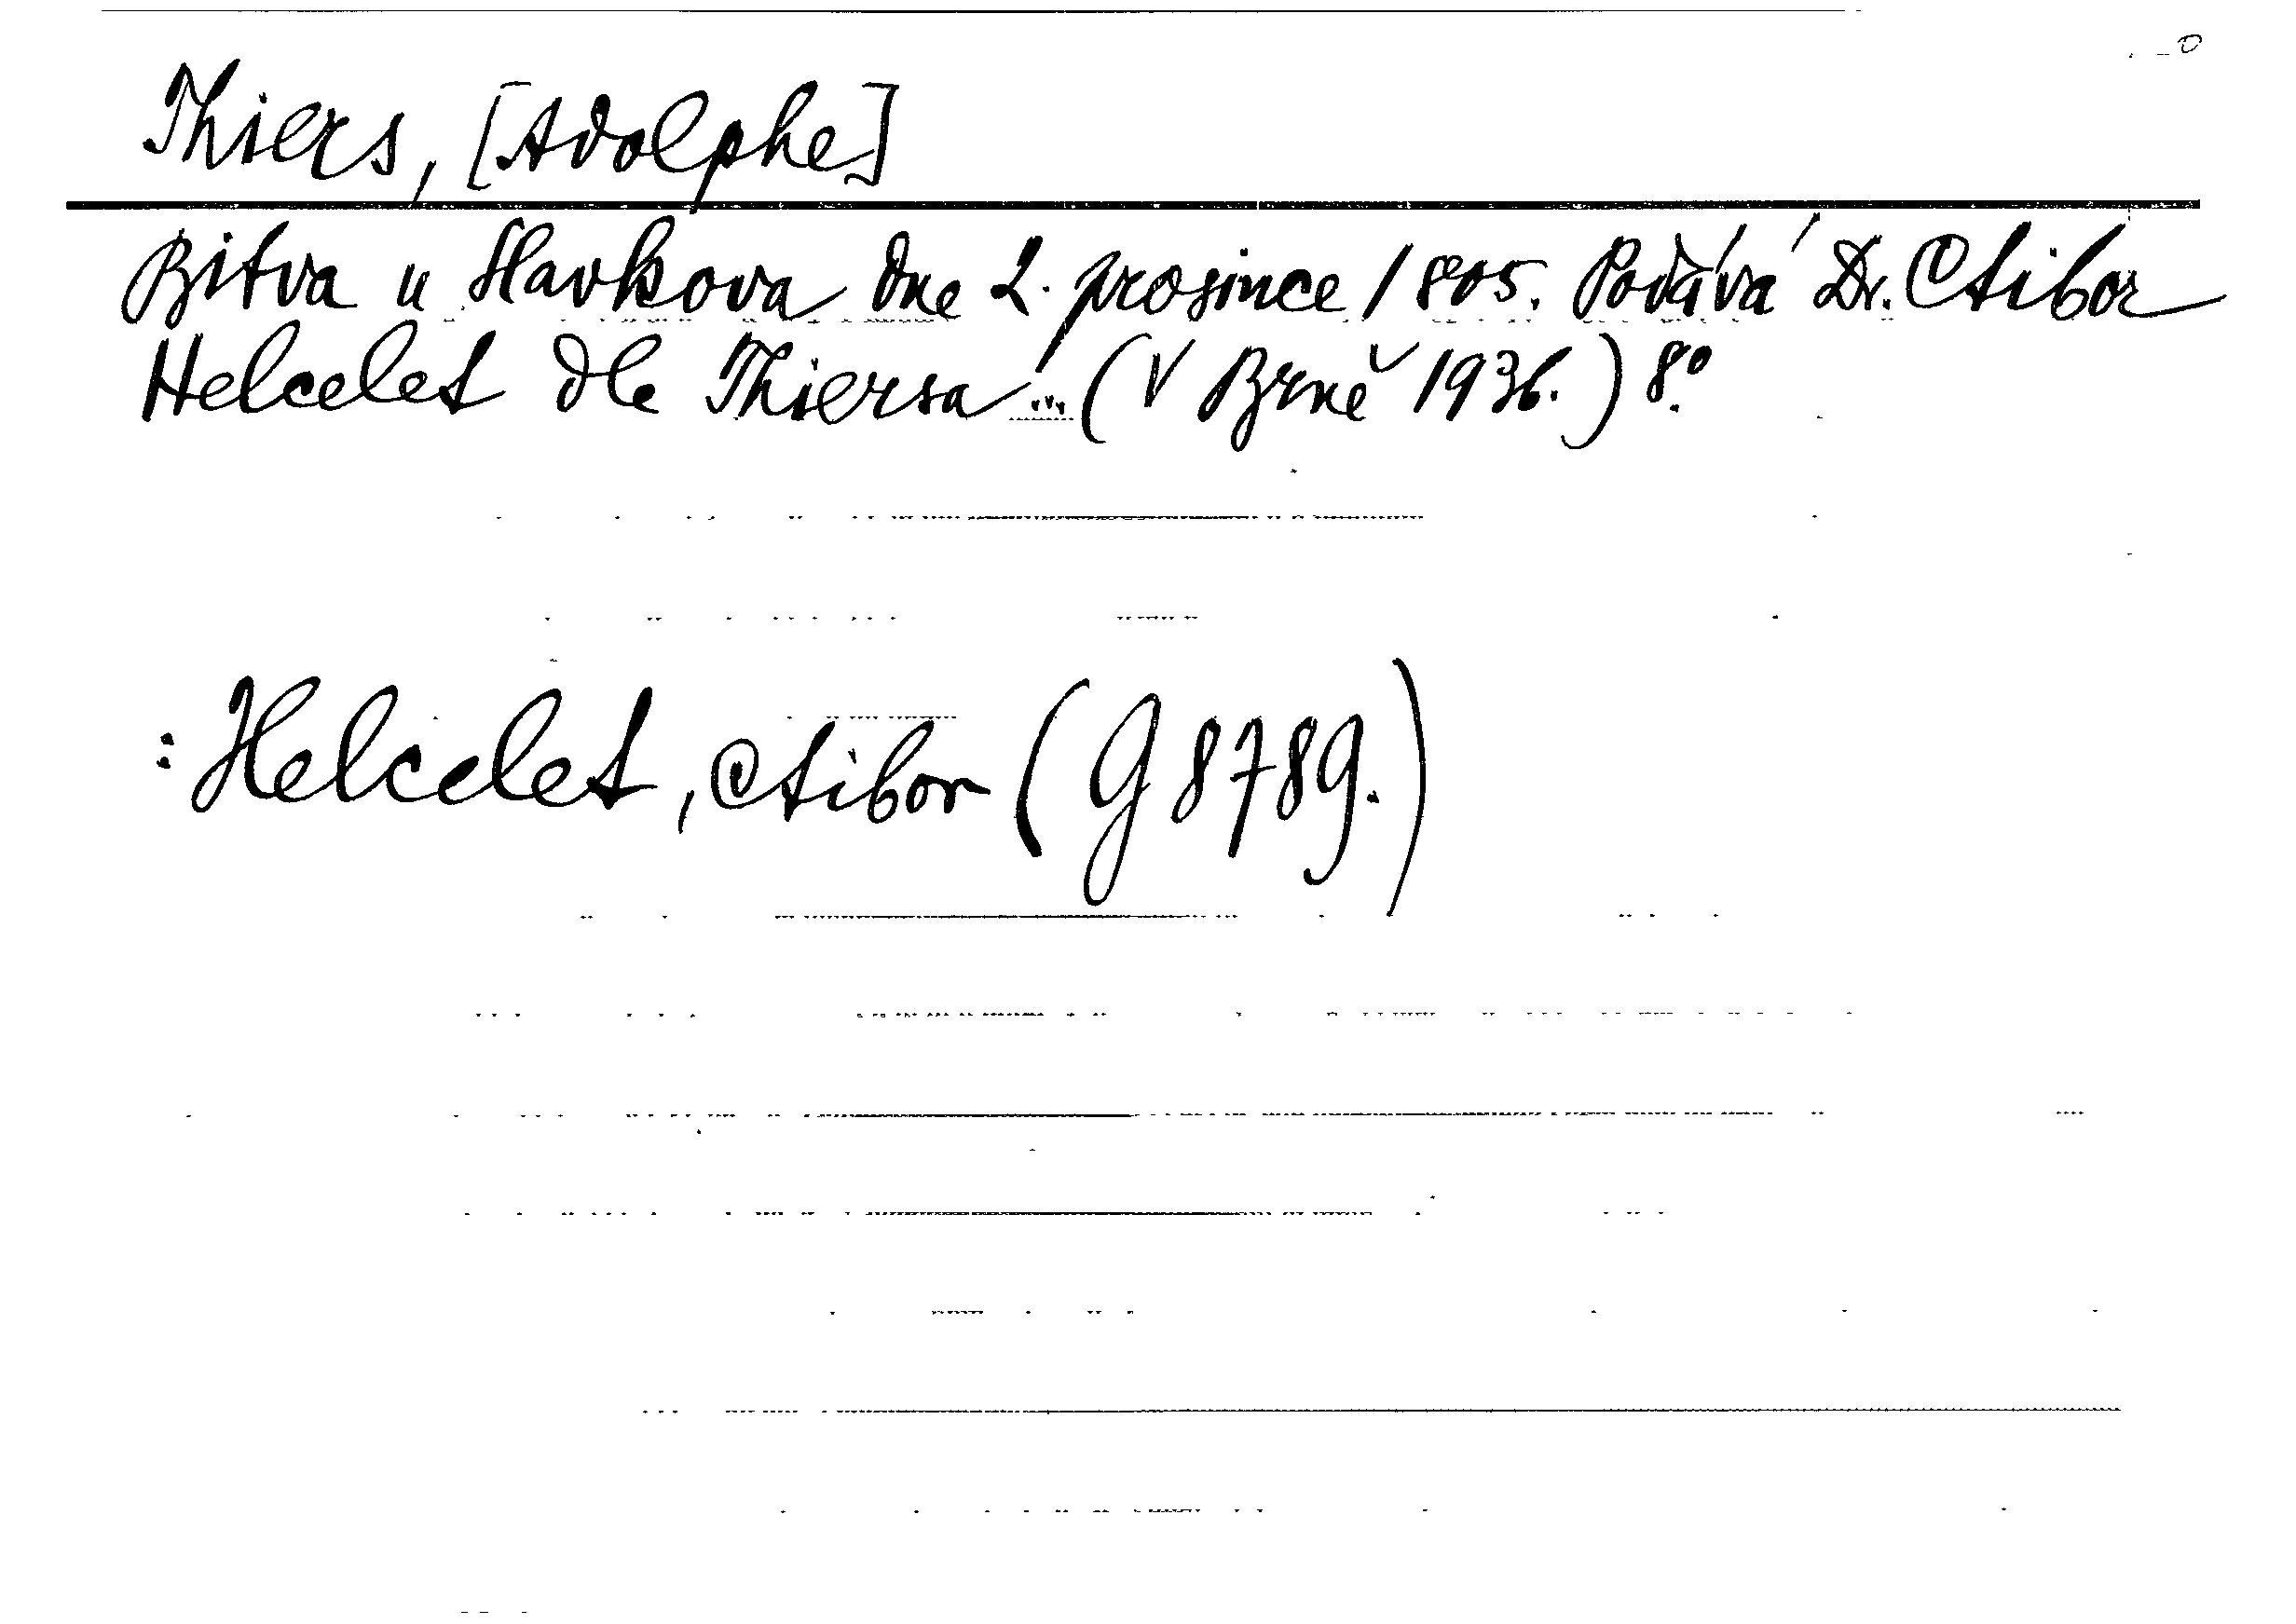 Thiers, [Adolphe]
Bitva u Slavkova dne 2. prosince 1805. Podává Dr. Ctibor
Helcelet dle Thiersa ... (V Brně 1936.) 8°.
: Helcelet, Ctibor (G 8789.)